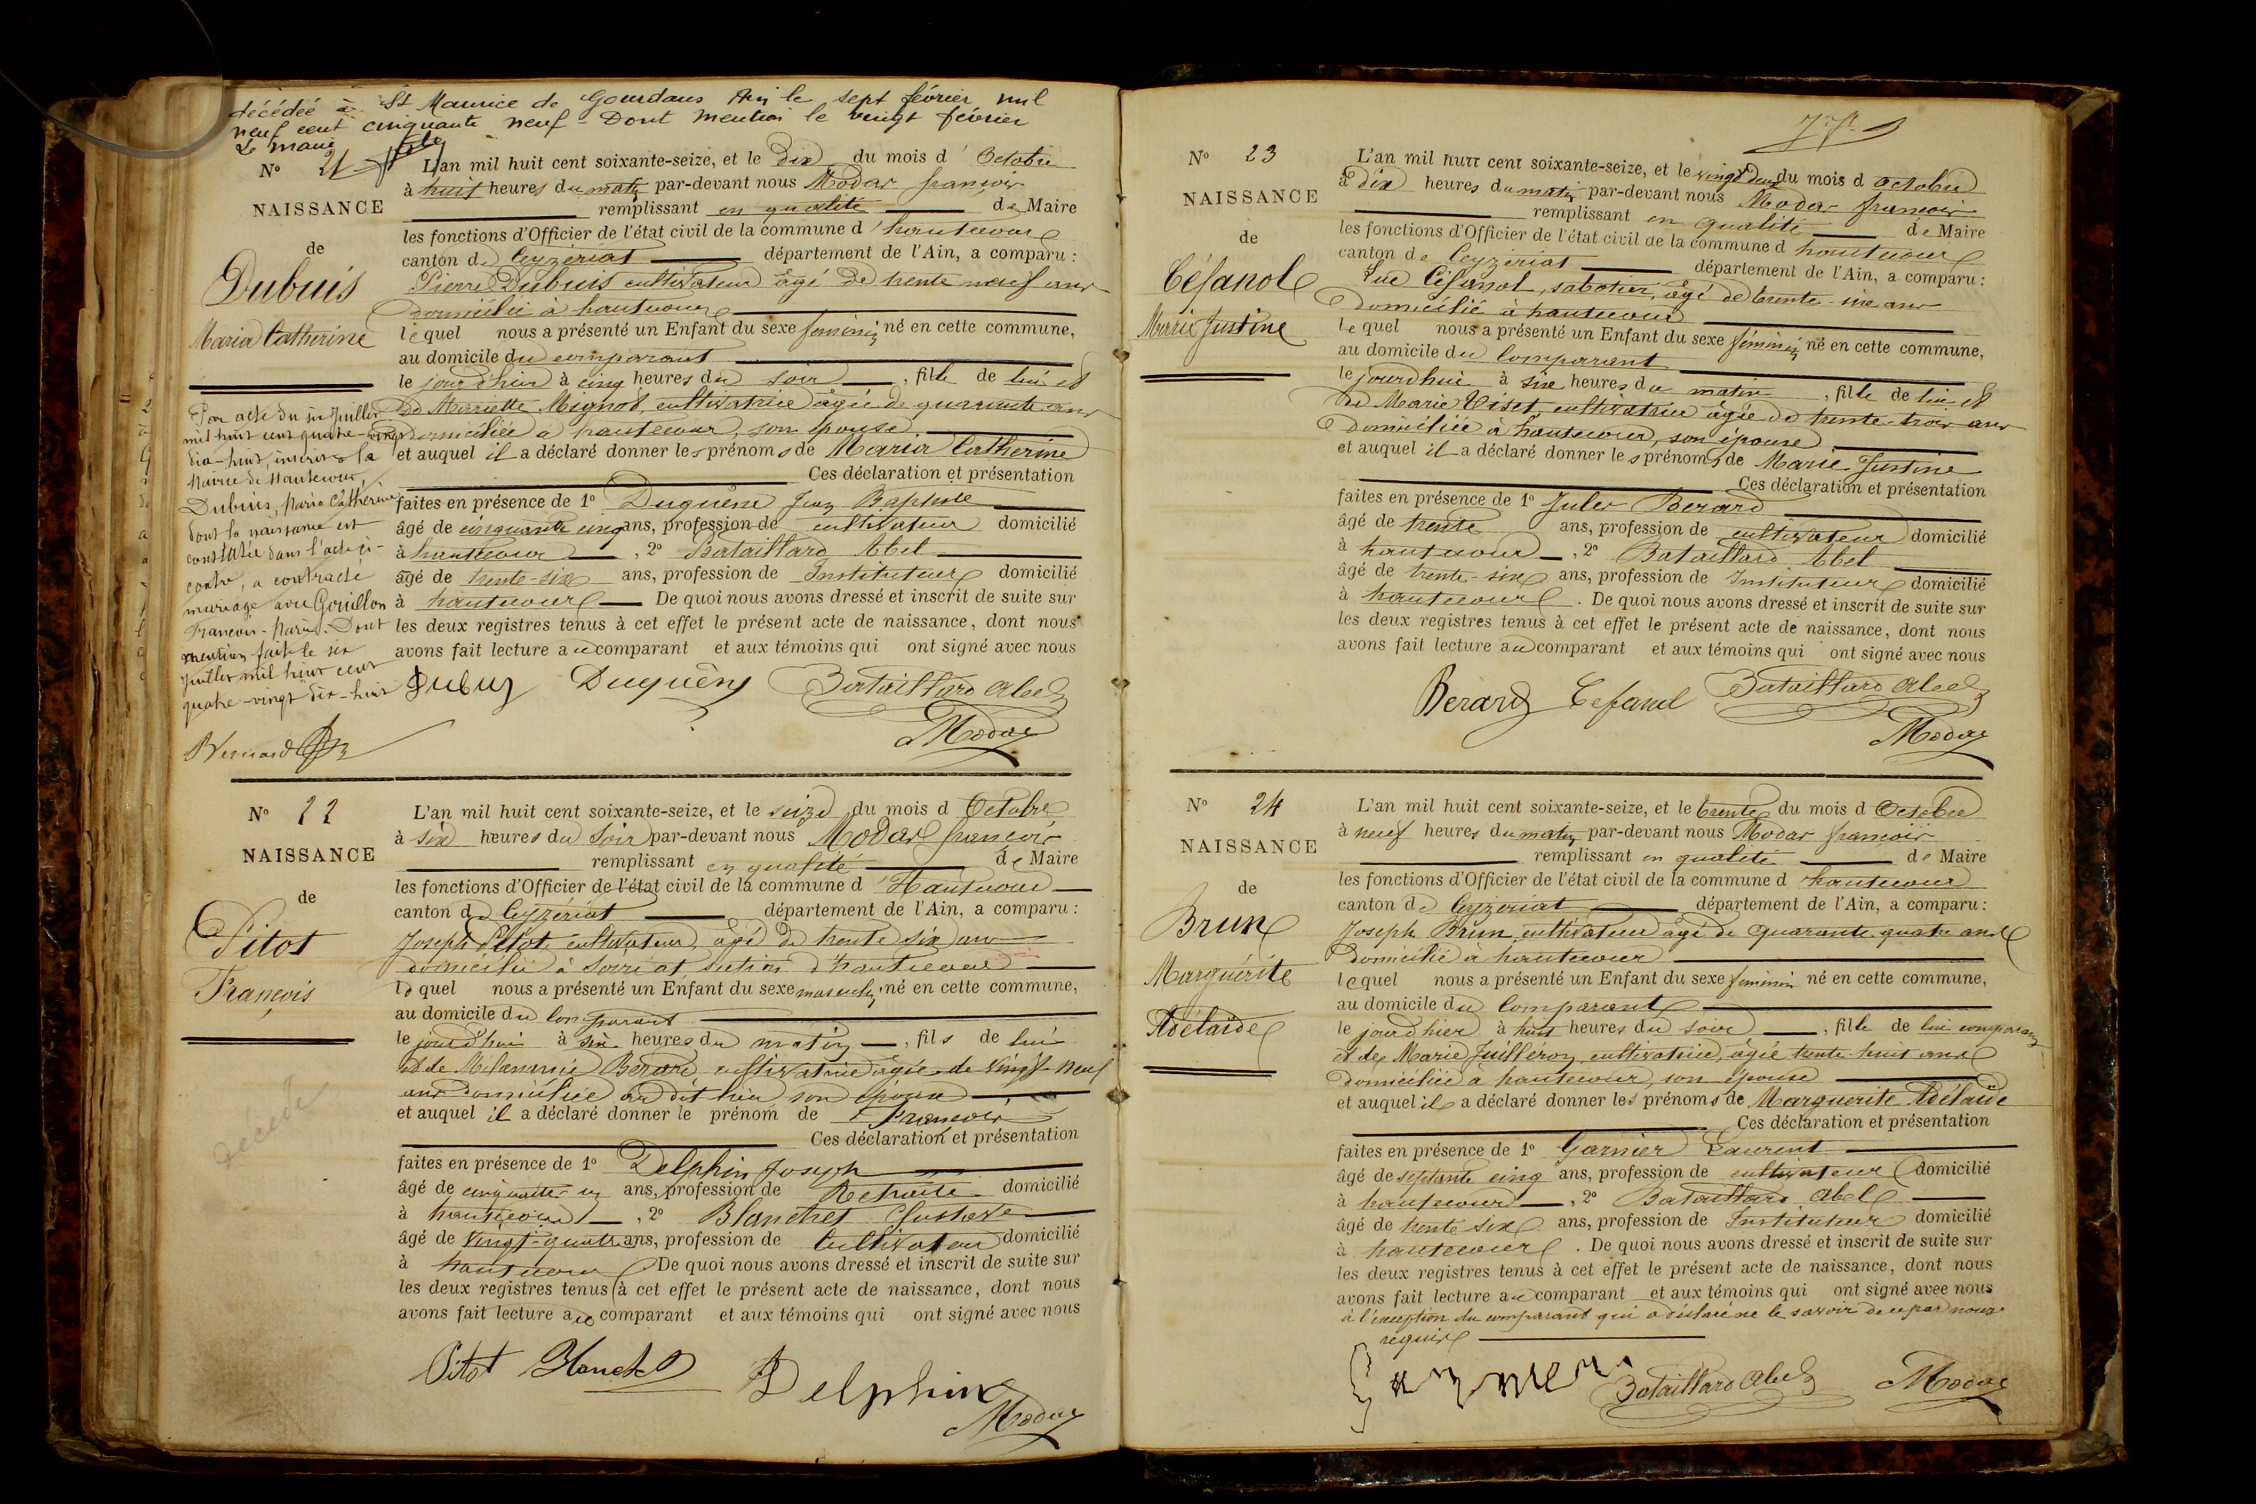 décédée à St Maurice de Gourdans Ain le sept février mil
neuf cent cinquante neuf - Dont mention le vingt février
Le maire
N° 21
NAISSANCE
de
Dubuis
Maria Catherine
L'an mil huit cent soixante-seize, et le Dix du mois d'Octobre
à huit heures du matin par-devant nous Modas françois
remplissant en qualité de Maire
les fonctions d'Officier de l'état civil de la commune d'hautecour
canton de Ceyzériat département de l'Ain, a comparu :
Pierre Dubuis cultivateur âgé de trente neuf ans
domicilié à hautecour
lequel nous a présenté un Enfant du sexe féminin né en cette commune,
au domicile du comparant
le jour d'hier à cinq heures du soir, fille de lui et
de Mariette Mignot, cultivatrice âgée de quarante ans
domiciliée à hautecour, son épouse
et auquel il a déclaré donner les prénoms de Maria Catherine
Ces déclaration et présentation
faites en présence de 1° Duguène Jean Baptiste
âgé de cinquante cinq ans, profession de cultivateur domicilié
à hautecour, 2° Bataillard Abel
âgé de trente-six ans, profession de Instituteur domicilié
à hautecour De quoi nous avons dressé et inscrit de suite sur
les deux registres tenus à cet effet le présent acte de naissance, dont nous
avons fait lecture au comparant et aux témoins qui ont signé avec nous
Par acte du six Juillet
mil huit cent quatre-vingt
dix-huit, inscrit à la
Mairie de Hautecour,
Dubuis, Maria Catherine
dont la naissance est
constatée dans l'acte ci-
contre, a contracté
mariage avec Gouillon
François-Marie. Dont
mention faite le six
Juillet mil huit cent
quatre-vingt dix-huit
Bernard
Dubuis Duguène Bataillard Abel
Modas
N° 22
NAISSANCE
de
Pitot
François
L'an mil huit cent soixante-seize, et le seize du mois d Octobre
à six heures du Soir par-devant nous Modas françois
remplissant en qualité de Maire
les fonctions d'Officier de l'état civil de la commune d'Hautecour
canton de Ceyzériat département de l'Ain, a comparu :
Joseph Pitot cultivateur, âgé de trente six ans
domicilié à section d'hautecour
lequel nous a présenté un Enfant du sexe masculin né en cette commune,
au domicile du Comparant
le jourd'hui à six heures du matin, fils de lui
et de Mélannie Bérard cultivatrice âgée de vingt-neuf
ans domiciliée au dit lieu son épouse
et auquel il a déclaré donner le prénom de François
Ces déclaration et présentation
faites en présence de 1° Delphin Joseph
âgé de cinquante un ans, profession de Retraité domicilié
à hautecour, 2° Blanchet Gustave
âgé de vingt-quatre ans, profession de Cultivateur domicilié
à hautecour De quoi nous avons dressé et inscrit de suite sur
les deux registres tenus à cet effet le présent acte de naissance, dont nous
avons fait lecture au comparant et aux témoins qui ont signé avec nous
décédé
Pitot Blanchet Delphin
Modas
N° 23
NAISSANCE
de
Céfanol
Marie Justine
L'an mil huit cent soixante-seize, et le vingt deux du mois d Octobre
à dix heures du matin par-devant nous Modas françois
remplissant en qualité de Maire
les fonctions d'Officier de l'état civil de la commune d hautecour
canton de Ceyzériat département de l'Ain, a comparu :
Luc Céfanol, sabotier, âgé de
domicilié à hautecour
lequel nous a présenté un Enfant du sexe féminin né en cette commune,
au domicile du Comparant
le jourd'hui à six heures du matin, fille de lui et
de Marie Viset, cultivatrice âgée de trente-trois ans
domiciliée à hautecour, son épouse
et auquel il a déclaré donner les prénoms de Marie Justine
Ces déclaration et présentation
faites en présence de 1° Jules Berard
âgé de trente ans, profession de cultivateur domicilié
à hautecour, 2° Bataillard Abel
âgé de trente-six ans, profession de Instituteur domicilié
à hautecour. De quoi nous avons dressé et inscrit de suite sur
les deux registres tenus à cet effet le présent acte de naissance, dont nous
avons fait lecture au comparant et aux témoins qui ont signé avec nous
Berard Cefanol Bataillard Abel
Modas
N° 24
NAISSANCE
de
Brun
Marguérite
Adélaïde
L'an mil huit cent soixante-seize, et le trente du mois d Octobre
à neuf heures du matin par-devant nous Modas françois
remplissant en qualité de Maire
les fonctions d'Officier de l'état civil de la commune d hautecour
canton de Ceyzériat département de l'Ain, a comparu :
Joseph Brun, cultivateur âgé de quarante quatre ans
domicilié à hautecour
lequel nous a présenté un Enfant du sexe féminin né en cette commune,
au domicile du Comparant
le jour d'hier à huit heures du soir, fille de lui comparant
et de Marie Juilléron cultivatrice, âgée trente huit ans
domiciliée à hautecour, son épouse
et auquel il a déclaré donner les prénoms de Marguerite Adélaïde
Ces déclaration et présentation
faites en présence de 1° Garnier Laurent
âgé de septante cinq ans, profession de cultivateur domicilié
à hautecour, 2° Bataillard Abel
âgé de trente six ans, profession de Instituteur domicilié
à hautecour. De quoi nous avons dressé et inscrit de suite sur
les deux registres tenus à cet effet le présent acte de naissance, dont nous
avons fait lecture au comparant et aux témoins qui ont signé avec nous
à l'exception du comparant qui a déclaré ne le savoir de ce par nous
requis
Garnier Bataillard Abel Modas